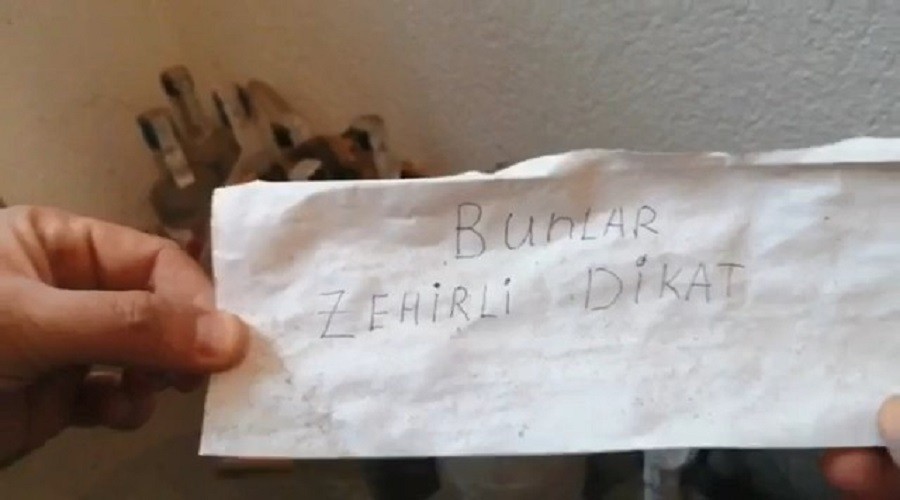 BUnLAR
ZEHİRLİ DİKAT